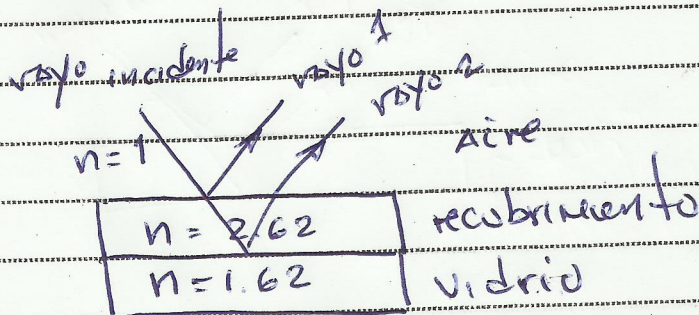 rayo incidente
rayo 1
rayo 2
n=1
Aire
n = 2.62
recubrimiento
n=1.62
vidrio